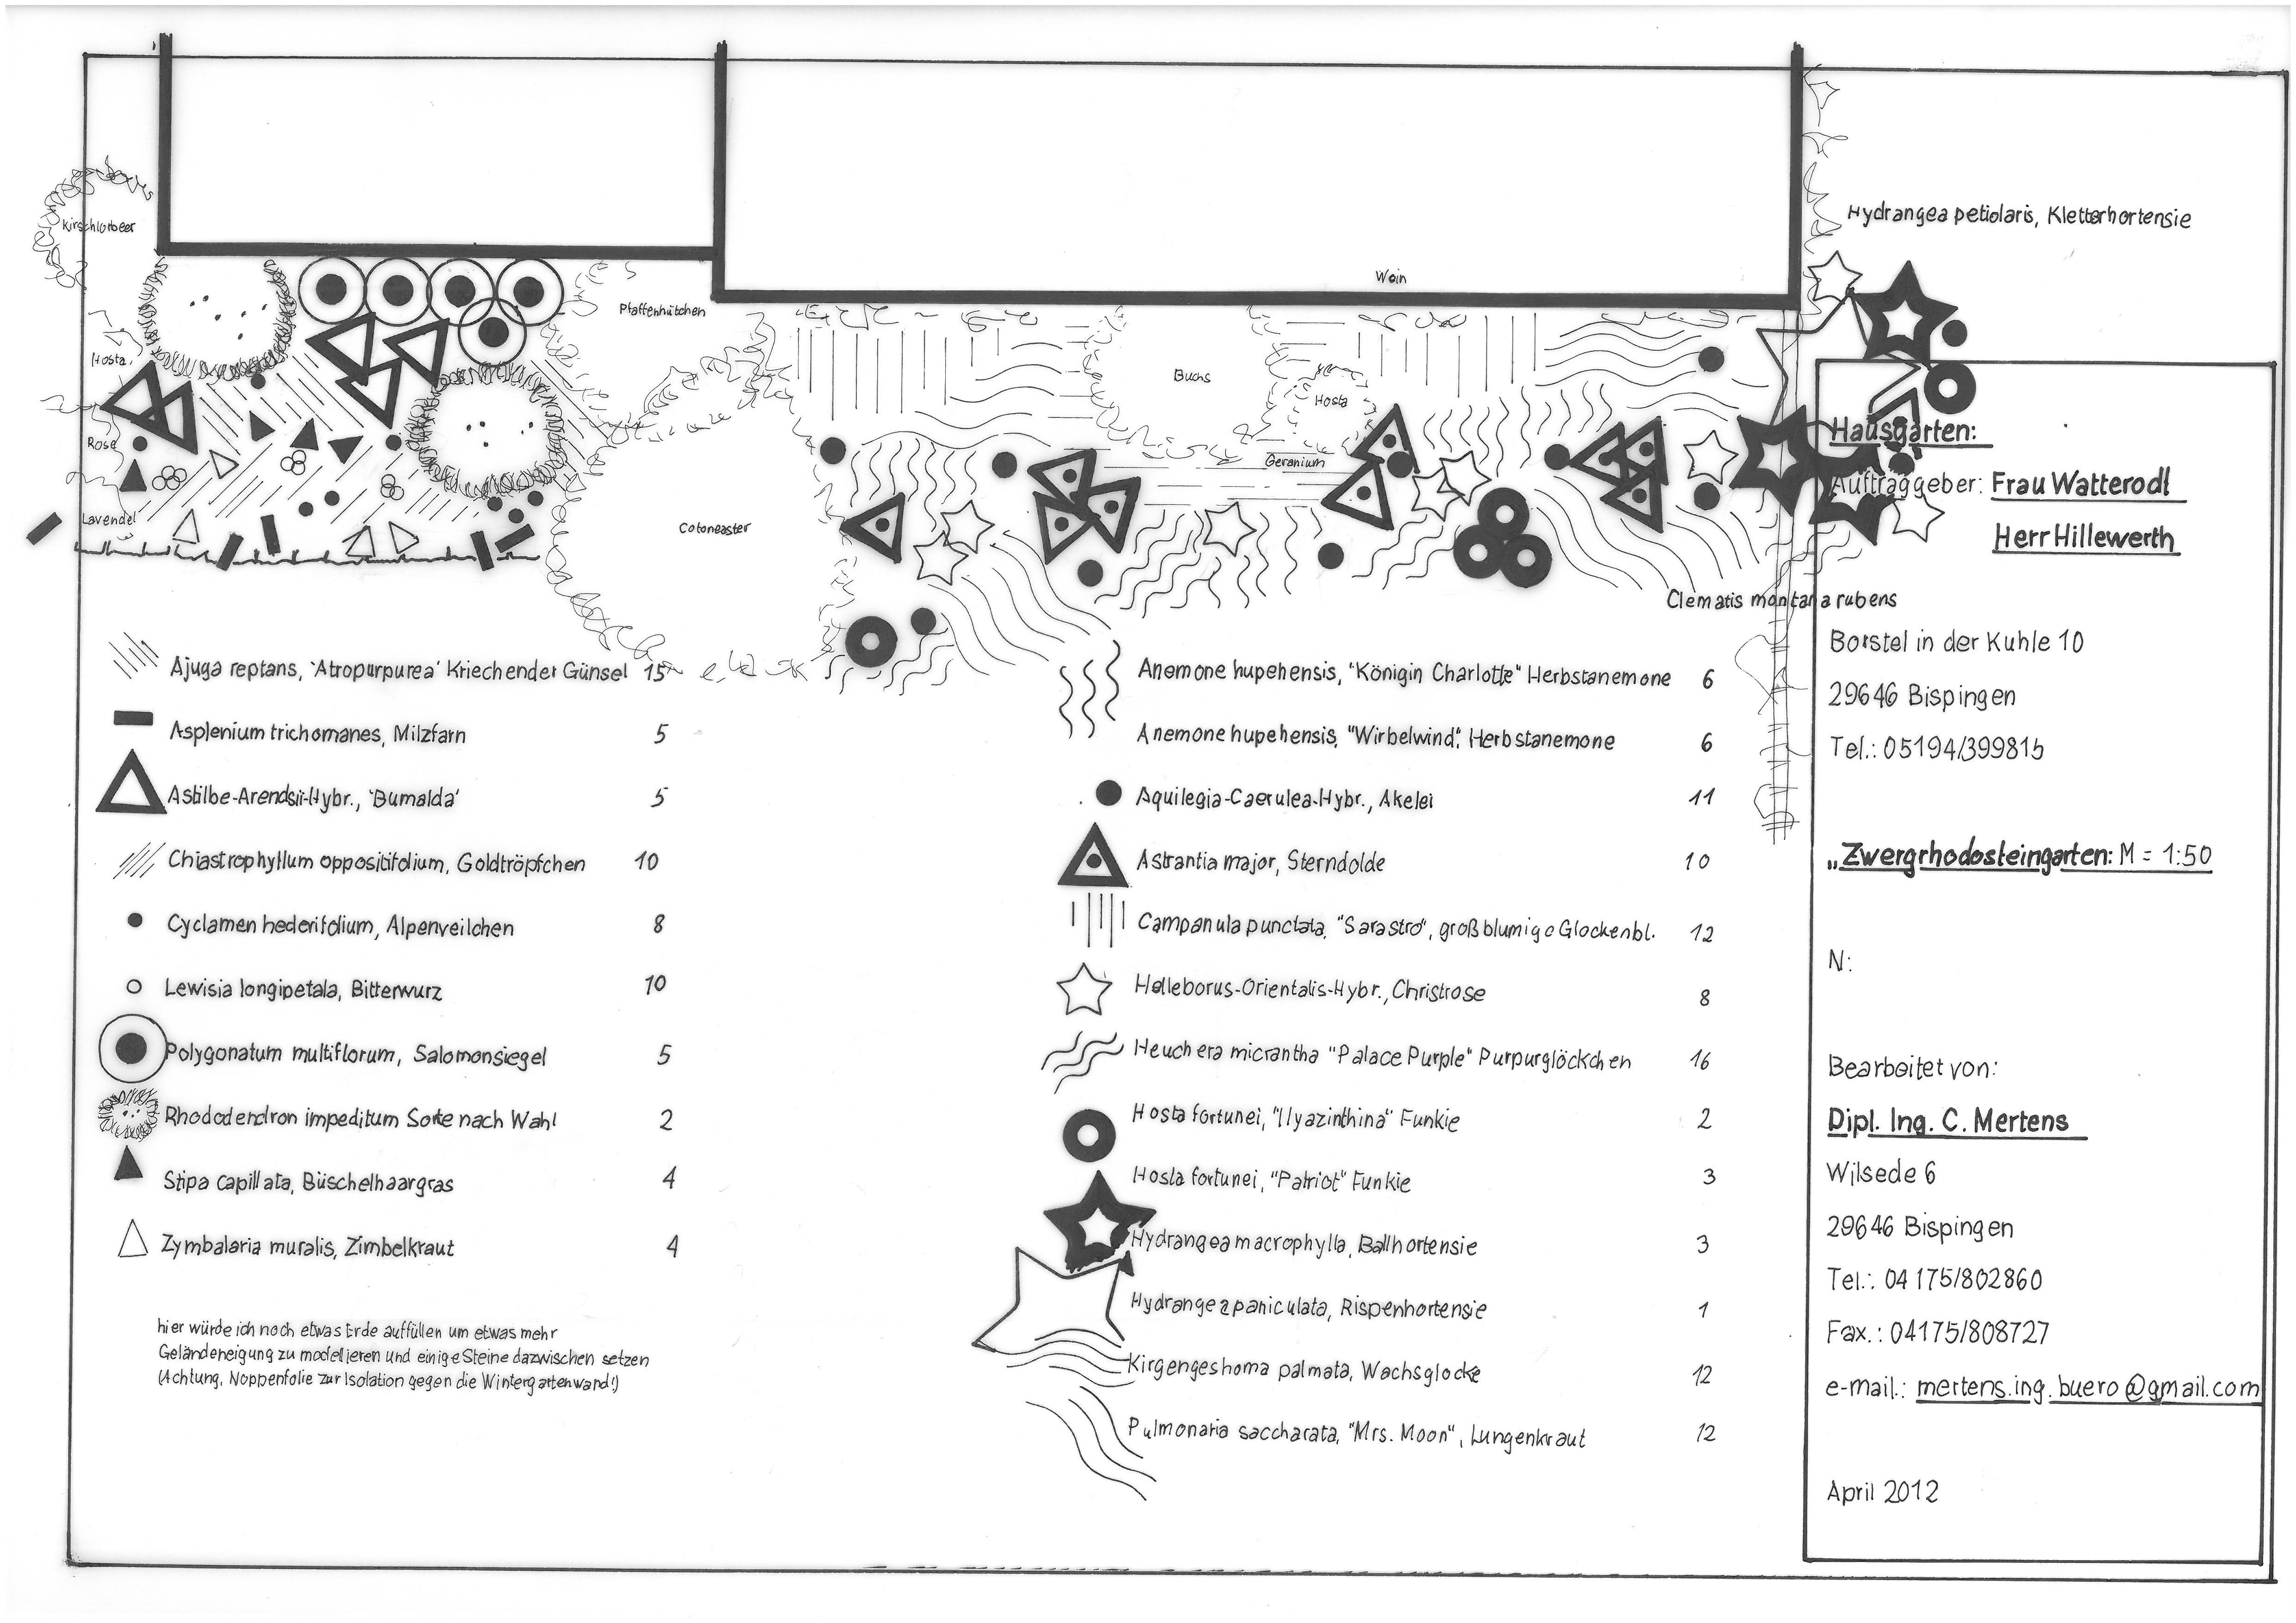 Hydrangea petiolaris, Kletterhortensie
Kirschlorbeer
Wein
Pfaffenhütchen
Hosta
Buchs
Hosta
Rose
Geranium
Lavendel
Cotoneaster
Clematis montana rubens
Ajuga reptans, 'Atropurpurea' Kriechender Günsel 15
Asplenium trichomanes, Milzfarn 5
Astilbe-Arendsii-Hybr., 'Bumalda' 5
Chiastrophyllum oppositifolium, Goldtröpfchen 10
Cyclamen hederifolium, Alpenveilchen 8
Lewisia longipetala, Bitterwurz 10
Polygonatum multiflorum, Salomonsiegel 5
Rhododendron impeditum Sorte nach Wahl 2
Stipa capillata, Büschelhaargras 4
Zymbalaria muralis, Zimbelkraut 4
hier würde ich noch etwas Erde auffüllen um etwas mehr
Geländeneigung zu modellieren und einige Steine dazwischen setzen
(Achtung, Noppenfolie zur Isolation gegen die Wintergartenwand!)
Anemone hupehensis, "Königin Charlotte" Herbstanemone 6
Anemone hupehensis, "Wirbelwind", Herbstanemone 6
Aquilegia-Caerulea-Hybr., Akelei 11
Astrantia major, Sterndolde 10
Campanula punctata, "Sarastro", großblumige Glockenbl. 12
Helleborus-Orientalis-Hybr., Christrose 8
Heuchera micrantha "Palace Purple" Purpurglöckchen 16
Hosta fortunei, "Hyazinthina" Funkie 2
Hosta fortunei, "Patriot" Funkie 3
Hydrangea macrophylla, Ballhortensie 3
Hydrangea paniculata, Rispenhortensie 1
Kirgengeshoma palmata, Wachsglocke 12
Pulmonaria saccharata, "Mrs. Moon", Lungenkraut 12
Hausgarten:
Auftraggeber: Frau Watterodl
Herr Hillewerth
Borstel in der Kuhle 10
29646 Bispingen
Tel.: 05194/399815
„Zwergrhodosteingarten: M = 1:50
N:
Bearbeitet von:
Dipl. Ing. C. Mertens
Wilsede 6
29646 Bispingen
Tel.: 04175/802860
Fax.: 04175/808727
e-mail.: mertens.ing.buero@gmail.com
April 2012